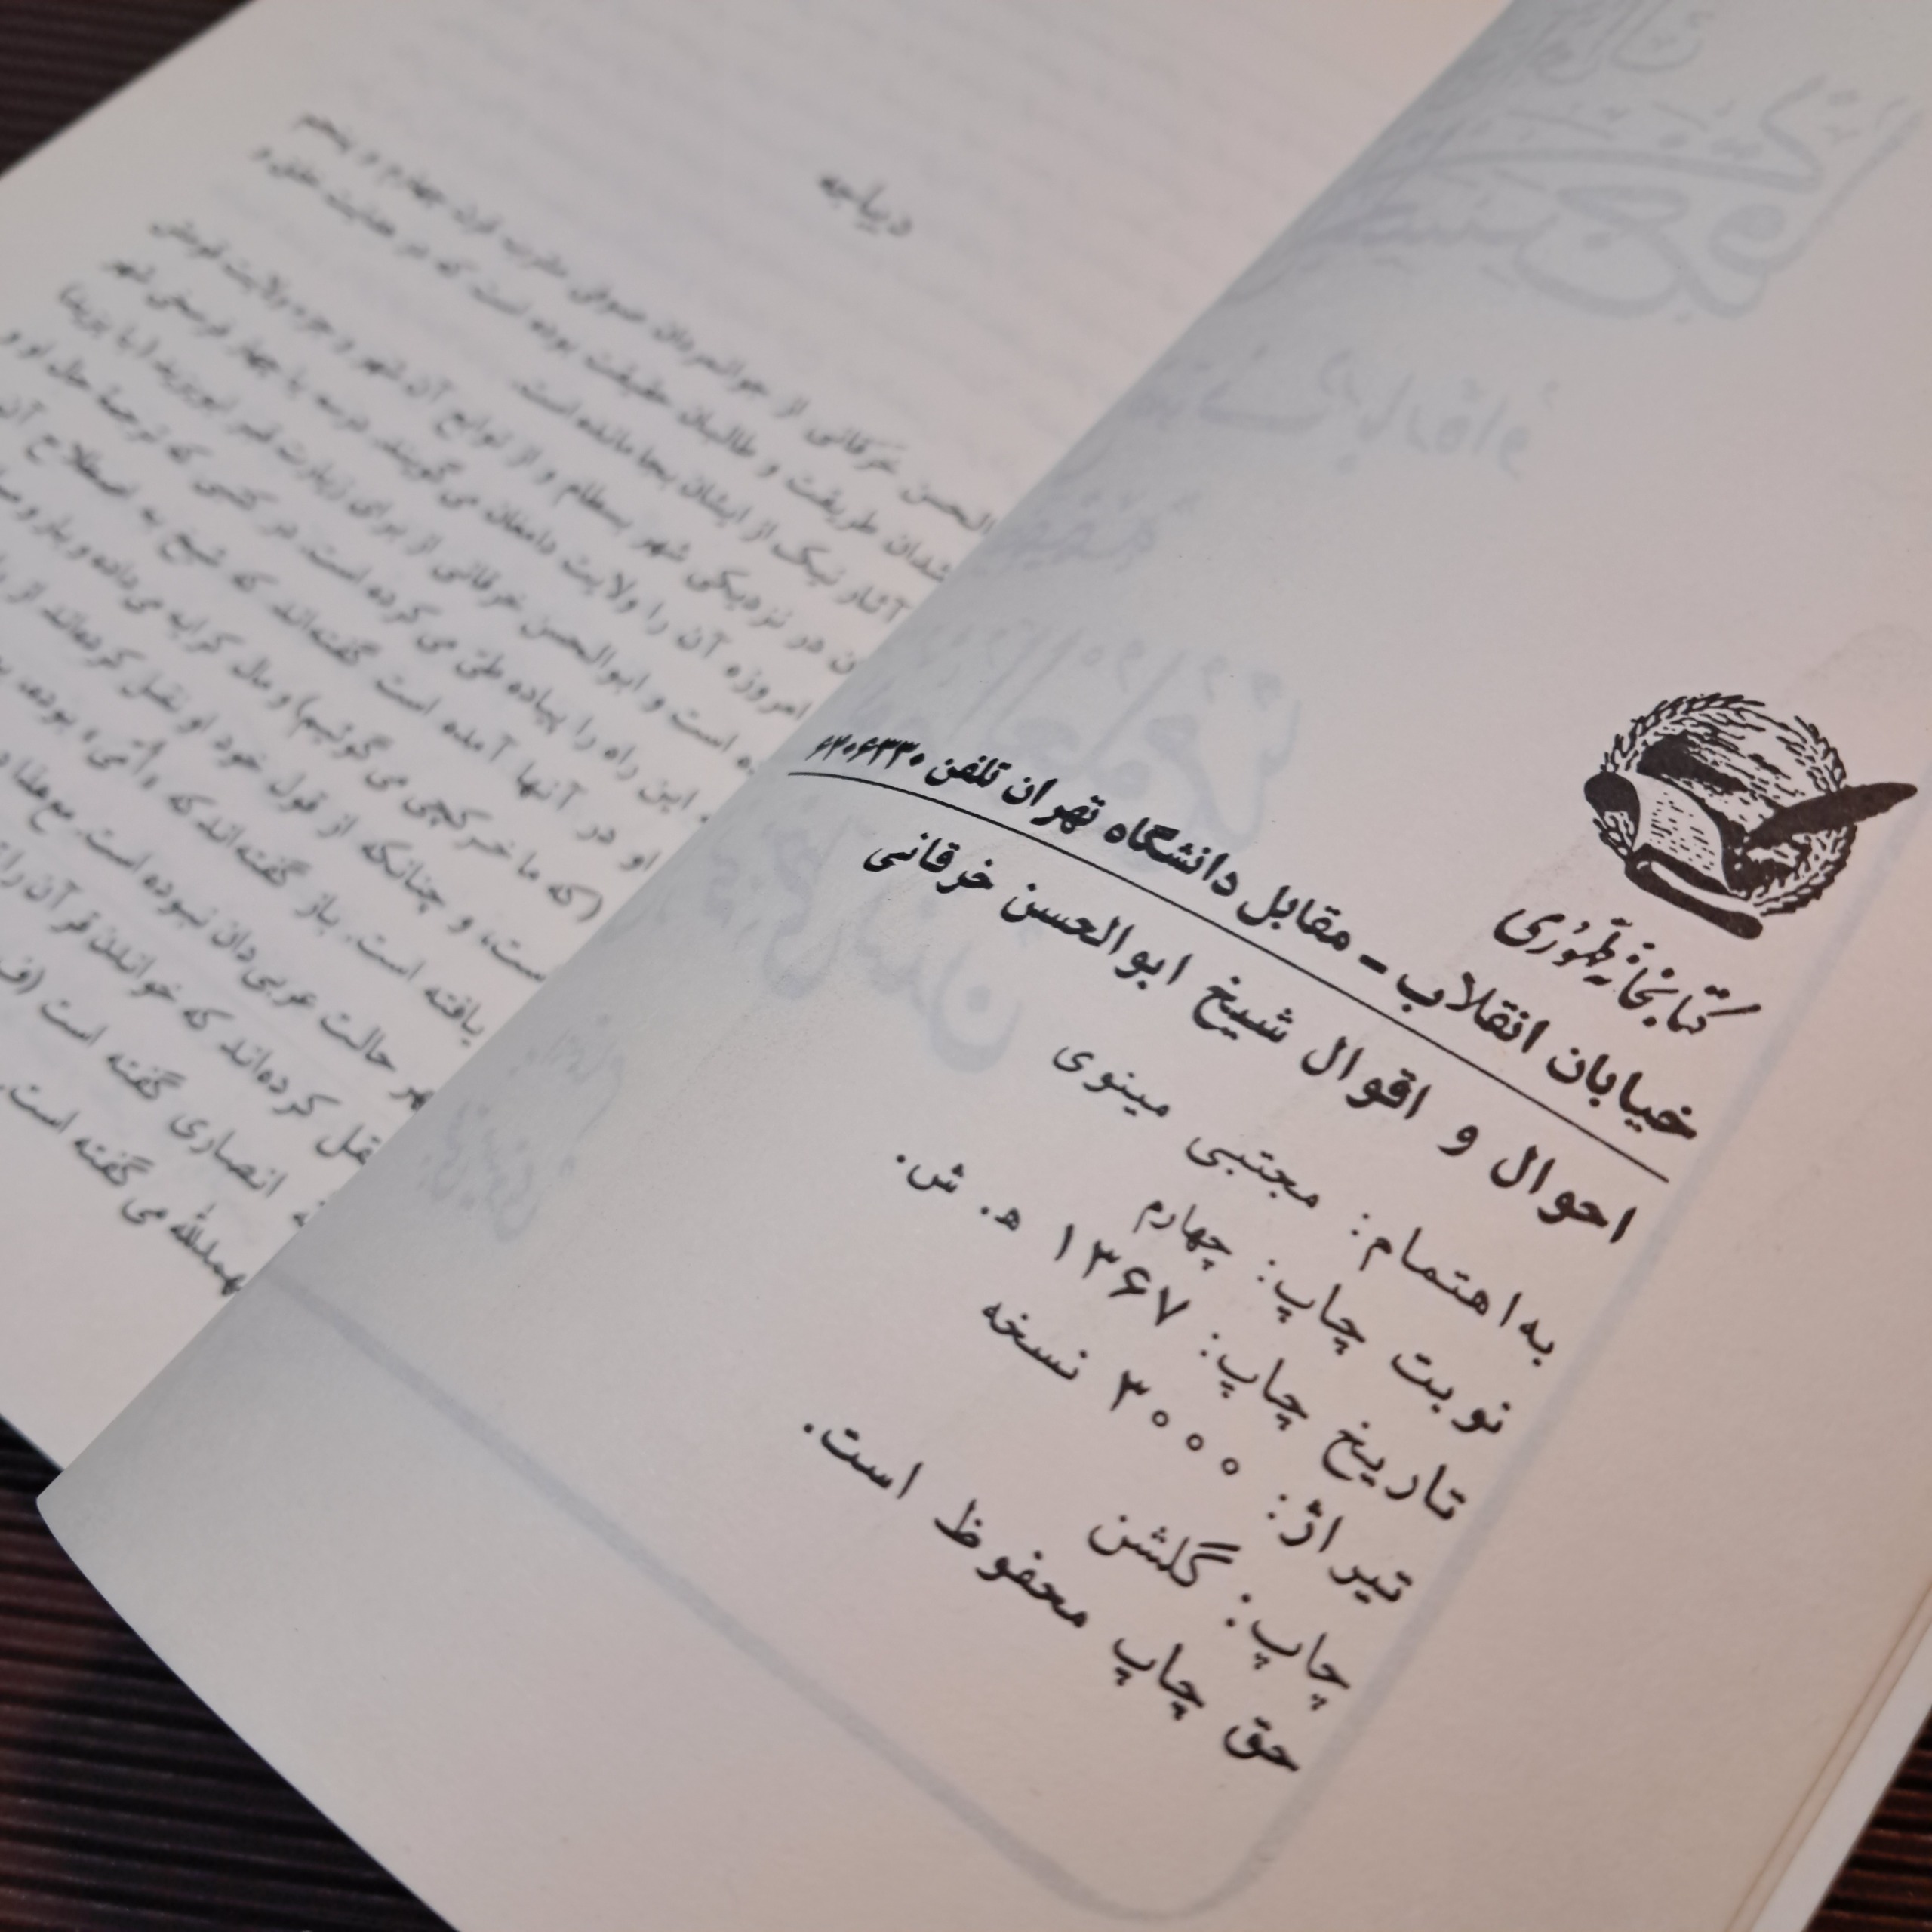 کتابخانه طهوری
خیابان انقلاب - مقابل دانشگاه تهران تلفن ۶۴۰۶۳۳۰
احوال و اقوال شیخ ابوالحسن خرقانی
به‌اهتمام: مجتبی مینوی
نوبت چاپ: چهارم
تاریخ چاپ: ۱۳۶۷ ه‍. ش.
تیراژ: ۳۰۰۰ نسخه
چاپ: گلشن
حق چاپ محفوظ است.
دیباجه
الحسن خرقانی از جوانمردان صوفی مشرب قرن چهارم و پنجم
شدان طریقت و طالبان حقیقت بوده است که در هدایت خلق و
آثار نیک از ایشان بجا مانده است.
در نزدیکی شهر بسطام و از توابع آن شهر و جزء ولایت قومش
امروزه آن را ولایت دامغان می‌گویند. درسه یا چهار فرسخی شهر
است و ابوالحسن خرقانی از برای زیارت قبر ابویزید (بایزید)
این راه را پیاده طی می‌کرده است. در کتبی که ترجمهٔ حال او و
او در آنها آمده است گفته‌اند که شیخ به اصطلاح آن
(که ما خرکچی می‌گوئیم) و مال کرایه می‌داده و بار و
است، و چنانکه از قول خود او نقل کرده‌اند از
یافته است. باز گفته‌اند که «اُمّی» بوده،
هر حالت عربی‌دان نبوده است. مع‌هذا
نقل کرده‌اند که خواندن قرآن را
انصاری گفته است (ف
الحمدلله می‌گفته است.